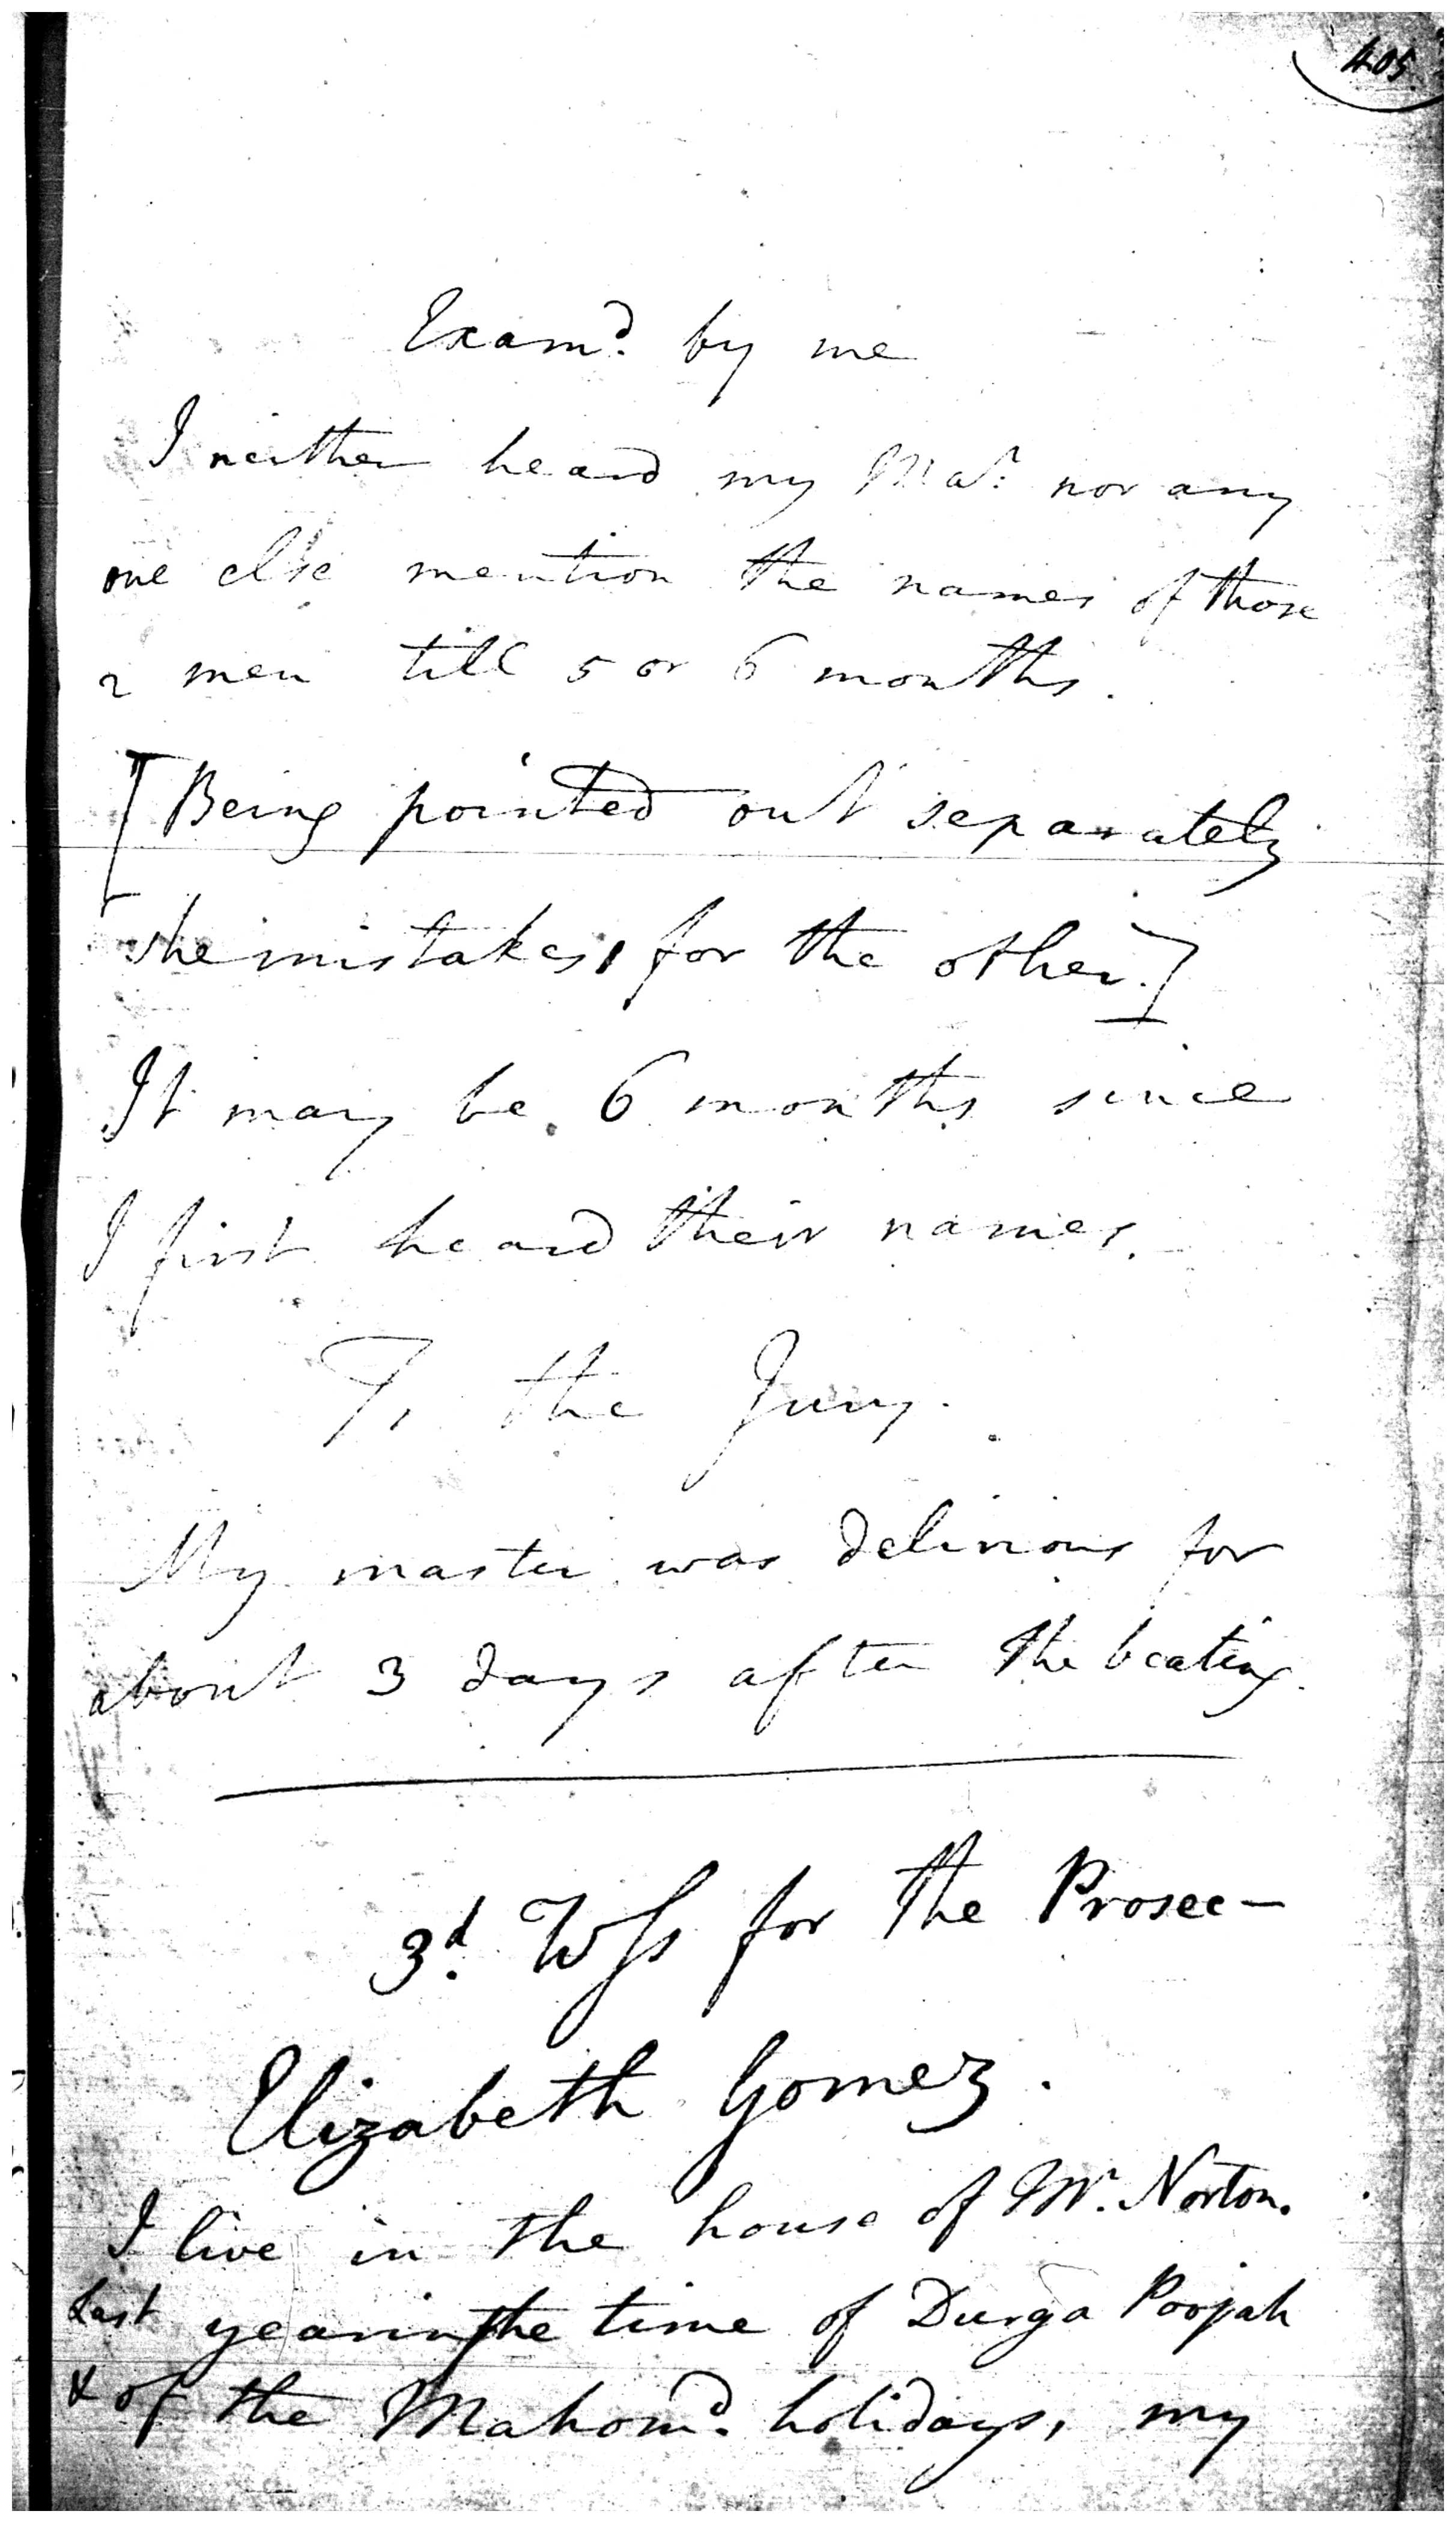 405
Examd. by me
I neither heard my Mar. nor any
one else mention the names of those
2 men till 5 or 6 months.
[Being pointed out separately
she mistakes 1 for the other.]
It may be 6 months since
I first heard their names.
To the Jury.
My master was delirious for
about 3 days after the beating.
3d. Wss for the Prosec-
Elizabeth Gomez.
I live in the house of Mr. Norton.
Last year in the time of Durga Poojah
& of the Mahomd. holidays, my